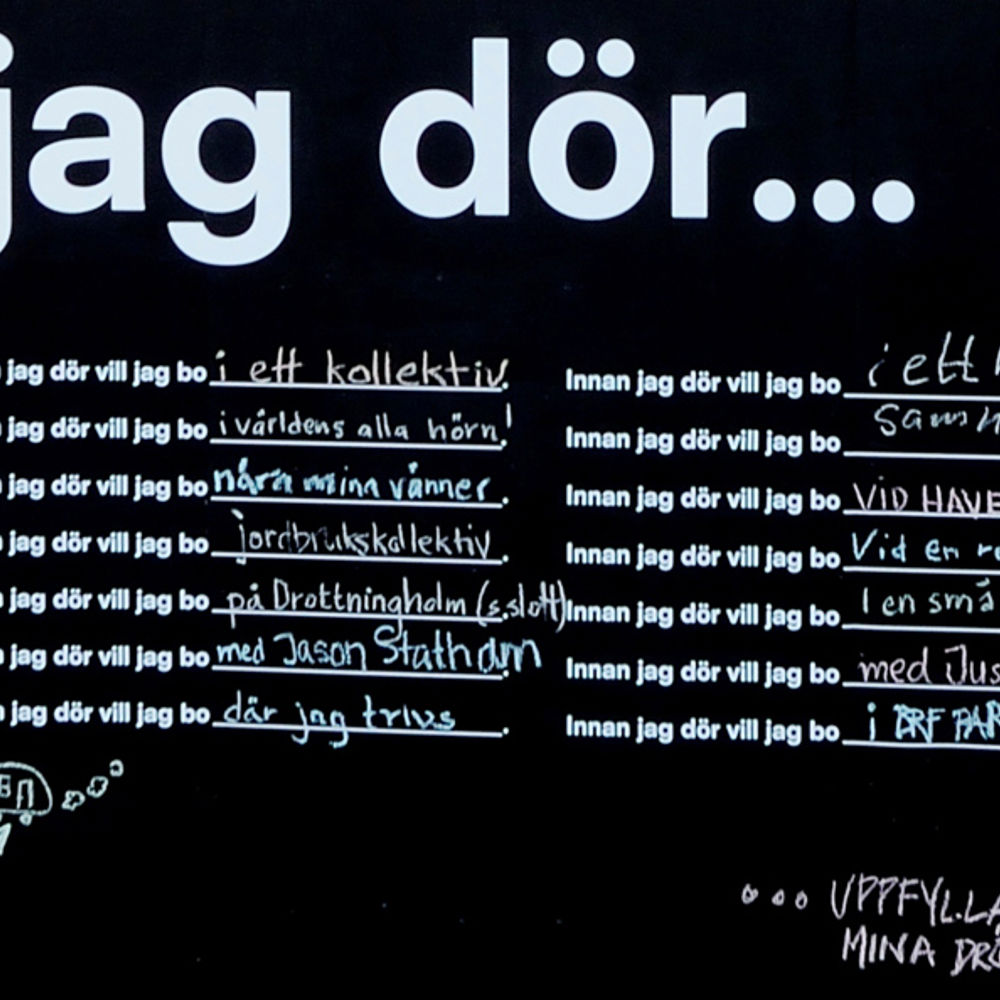 jag dör...
jag dör vill jag bo i ett kollektiv.
jag dör vill jag bo i världens alla hörn!
jag dör vill jag bo nära mina vänner.
jag dör vill jag bo jordbrukskollektiv.
jag dör vill jag bo på Drottningholm (s.slott)
jag dör vill jag bo med Jason Statham.
jag dör vill jag bo där jag trivs.
Innan jag dör vill jag bo i ett
Innan jag dör vill jag bo
Innan jag dör vill jag bo VID HAVE
Innan jag dör vill jag bo Vid en
Innan jag dör vill jag bo I en små
Innan jag dör vill jag bo med Jus
Innan jag dör vill jag bo i BRF PAR
... UPPFYLLA
MINA DRÖ